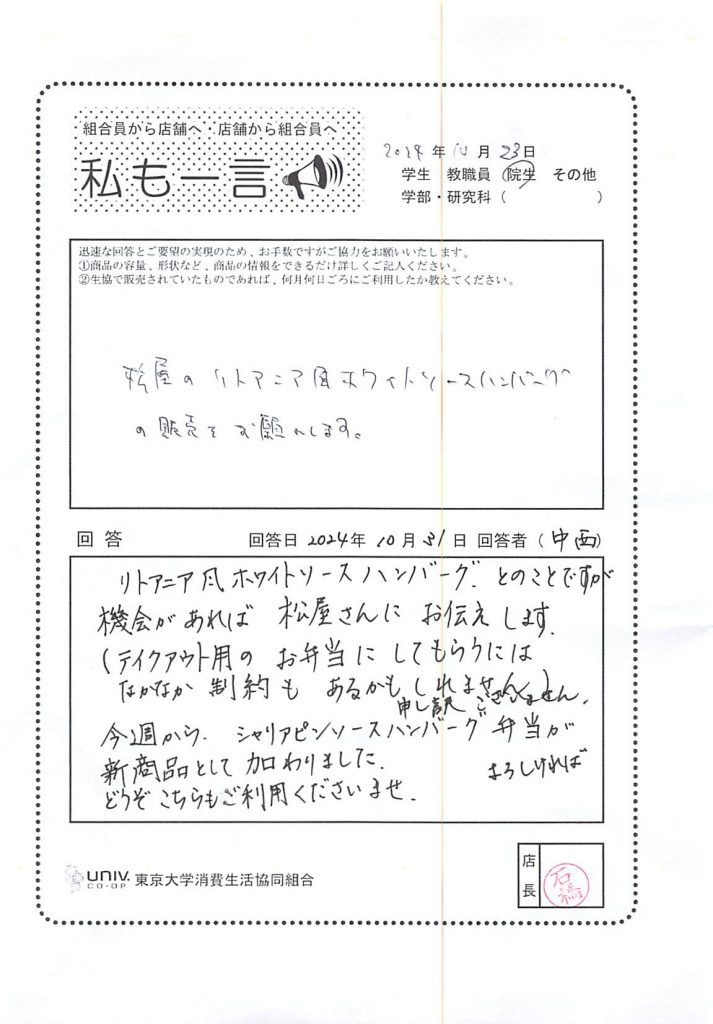 組合員から店舗へ 店舗から組合員へ
私も一言
2024年10月23日
学生 教職員 院生 その他
学部・研究科（ ）
迅速な回答とご要望の実現のため、お手数ですがご協力をお願いいたします。
①商品の容量、形状など、商品の情報をできるだけ詳しくご記入ください。
②生協で販売されていたものであれば、何月何日ごろにご利用したか教えてください。
松屋のリトアニア風ホワイトソースハンバーグ
の販売をお願いします。
回答 回答日 2024年 10月 31日 回答者（中西）
リトアニア風ホワイトソースハンバーグ. とのことですが
機会があれば 松屋さんに お伝えします.
(テイクアウト用の お弁当に してもらうには
なかなか 制約も あるかもしれません)
申し訳ございません.
今週から. シャリアピンソースハンバーグ弁当が
新商品として加わりました.
よろしければ
どうぞこちらもご利用くださいませ.
UNIV. CO-OP 東京大学消費生活協同組合
店長
石橋